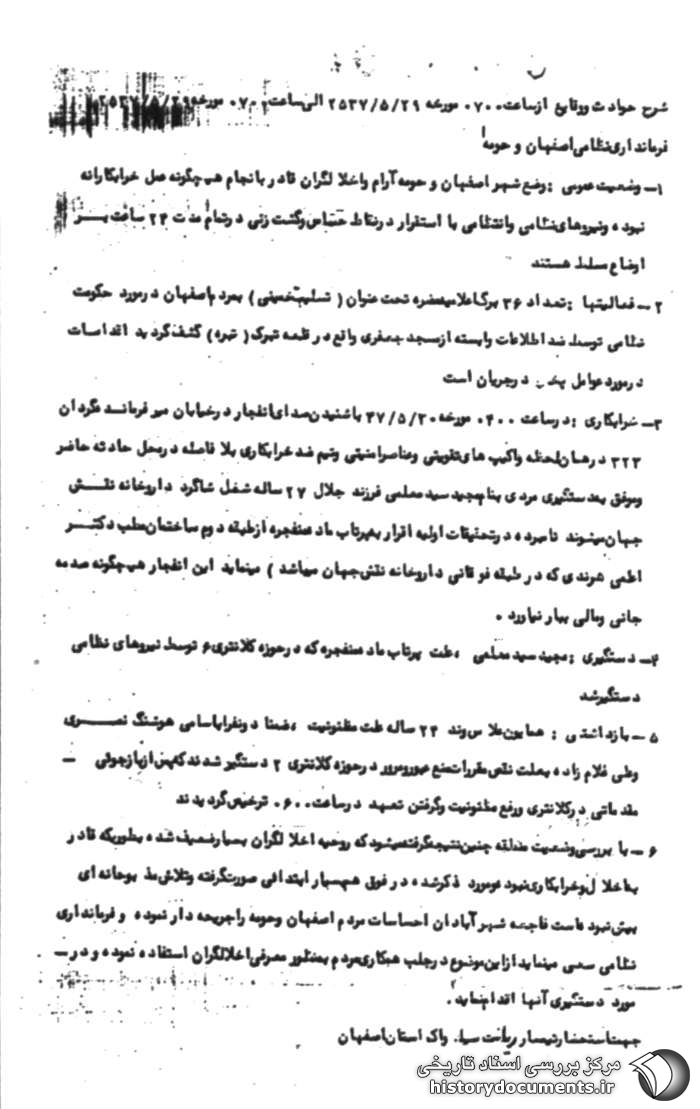 شرح حوادث و وقایع از ساعت ۰۷۰۰ مورخه ۲۵۳۷/۵/۲۹ الی ساعت ۰۷۰۰ مورخه
فرمانداری نظامی اصفهان و حومه
۱ـ وضعیت عمومی : وضع شهر اصفهان و حومه آرام و اخلالگران قادر بانجام هیچگونه عمل خرابکارانه
نبوده و نیروهای نظامی و انتظامی با استقرار در نقاط حساس و گشت زنی در تمام مدت ۲۴ ساعت بـر
اوضاع مسلط هستند
۲ـ فعالیتها : تعداد ۳۶ برگ اعلامیه مضره تحت عنوان ( تسلیم خمینی ) بمردم اصفهان در مورد حکومت
نظامی توسط ضد اطلاعات وابسته از مسجد جعفری واقع در قلعه تبرک ( تبره ) کشف گردید اقدامات
در مورد عوامل پخش در جریان است
۳ـ خرابکاری : در ساعت ۰۴۰۰ مورخه ۳۷/۵/۳۰ باشنیدن صدای انفجار در خیابان میر فرمانده گردان
۳۲۳ در همان لحظه واکیپ های تقویتی و عناصر امنیتی و تیم ضد خرابکاری بلا فاصله در محل حادثه حاضر
و موفق بدستگیری مردی بنام مجید سید معلمی فرزند جلال ۲۷ ساله شغل شاگرد داروخانه نقـش
جهان میشوند نامبرده در تحقیقات اولیه اقرار به پرتاب ماده منفجره از طبقه دوم ساختمان مطب دکتـر
شرندی که در طبقه فوقانی داروخانه نقش جهان میباشد ) مینماید این انفجار هیچگونه صدمه
جانی و مالی ببار نیاورد .
۴ـ دستگیری : مجید سید معلمی ، علت پرتاب ماده منفجره که در حوزه کلانتری ۶ توسط نیروهای نظامی
دستگیر شد
۵ـ بازداشتی : همایون ۲۴ ساله علت مظنونیت ، ضمنا دو نفر باسامی هوشنگ نصـری
وعلی غلام زاده بعلت نقض مقررات منع عبور و مرور در حوزه کلانتری ۲ دستگیر شدند که پس از بازجوئی ـ
مقدماتی در کلانتری و رفع مظنونیت و گرفتن تعهد در ساعت ۰۶۰۰ ترخیص گردیدند
۶ـ با بررسی وضعیت منطقه چنین نتیجه گرفته میشود که روحیه اخلالگران بسیار ضعیف شده بطوریکه قادر
به اخلال و خرابکاری نبوده و مورد ذکر شده در فوق هم بسیار ابتدائی صورت گرفته و تلاش مذبوحانه ای
بیش نبوده است فاجعه شهر آبادان احساسات مردم اصفهان و حومه را جریحه دار نموده و فرمانداری
نظامی سعی مینماید از این موضوع در جلب همکاری مردم بمنظور معرفی اخلالگران استفاده نموده و در ـ
مورد دستگیری آنها اقدام نماید .
جهت استحضار تیمسار ریاست ساواک استان اصفهان
مرکز بررسی اسناد تاریخی
historydocuments.ir